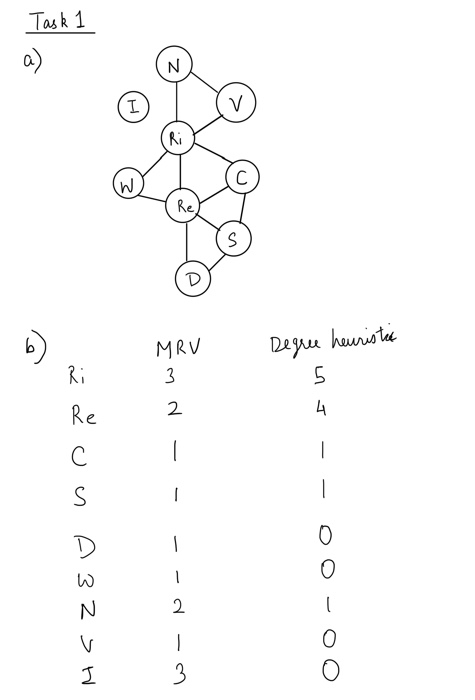 Task 1
a)
N
I
V
Ri
W
C
Re
S
D
b) MRV Degree heuristic
Ri 3 5
Re 2 4
C 1 1
S 1 1
D 1 0
W 1 0
N 2 1
V 1 0
I 3 0